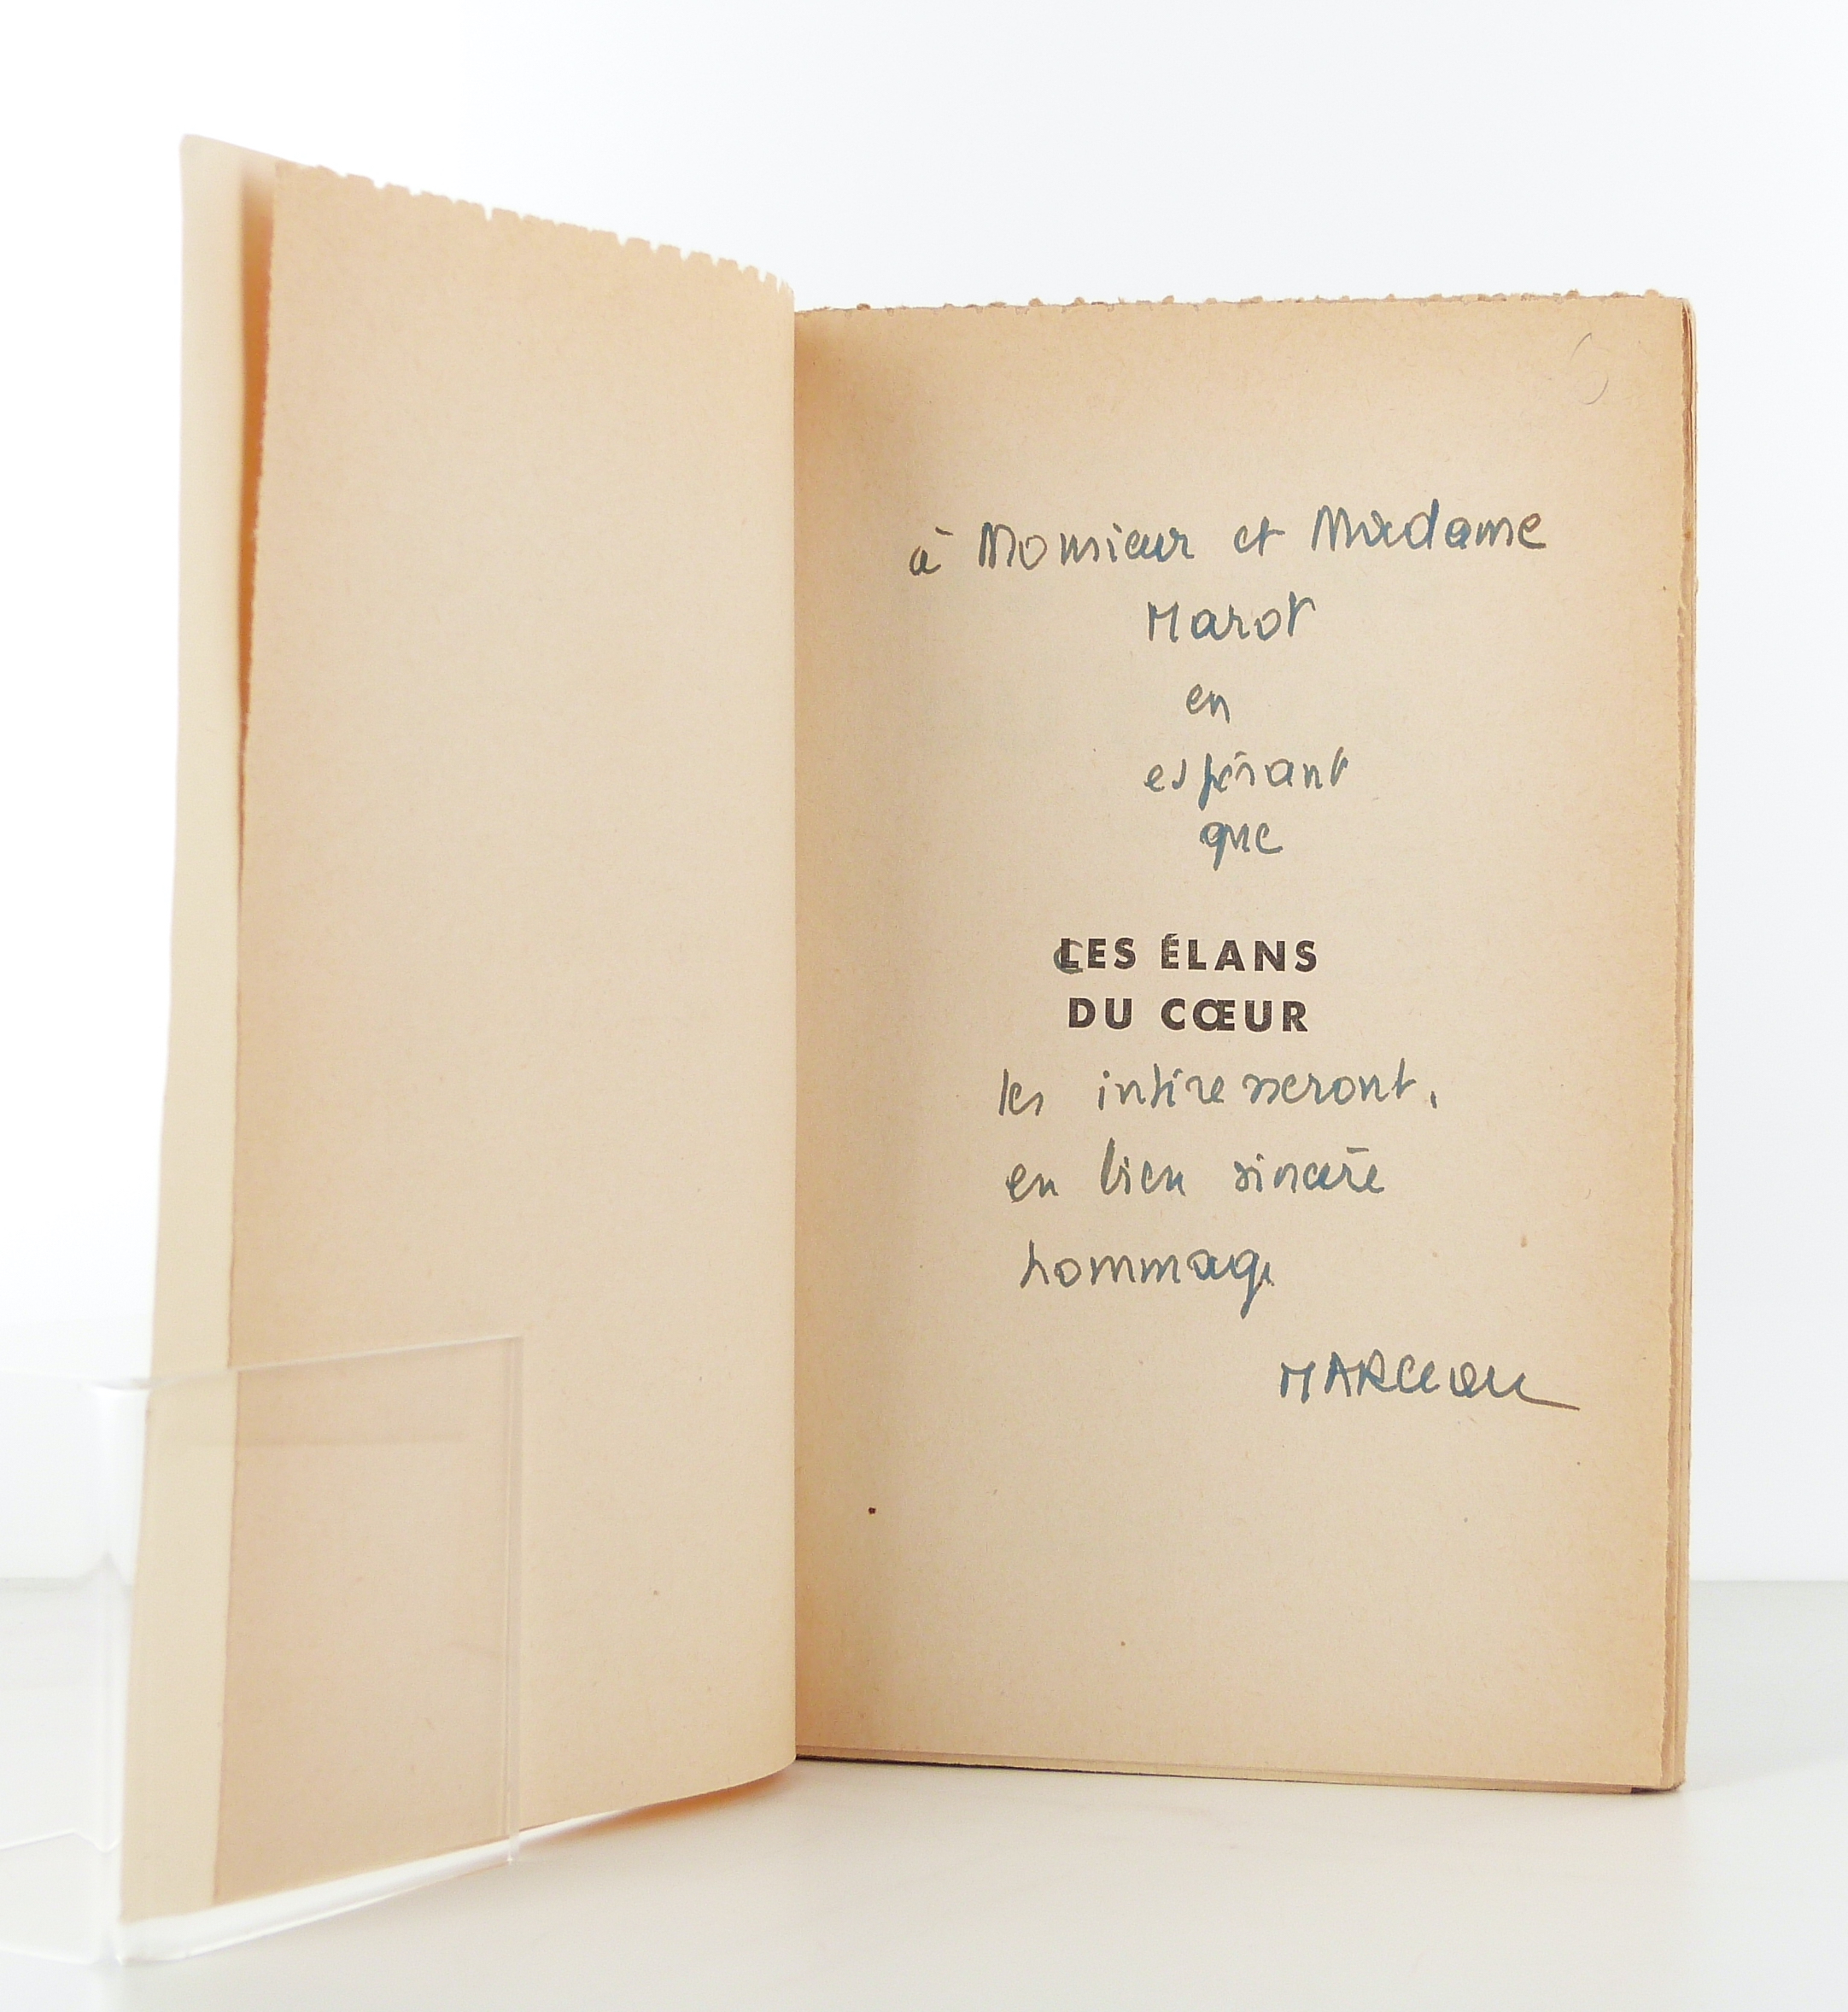 à Monsieur et Madame
Marot
en
espérant
que
LES ÉLANS
DU CŒUR
les intéresseront,
en bien sincère
hommage
MARCEAU